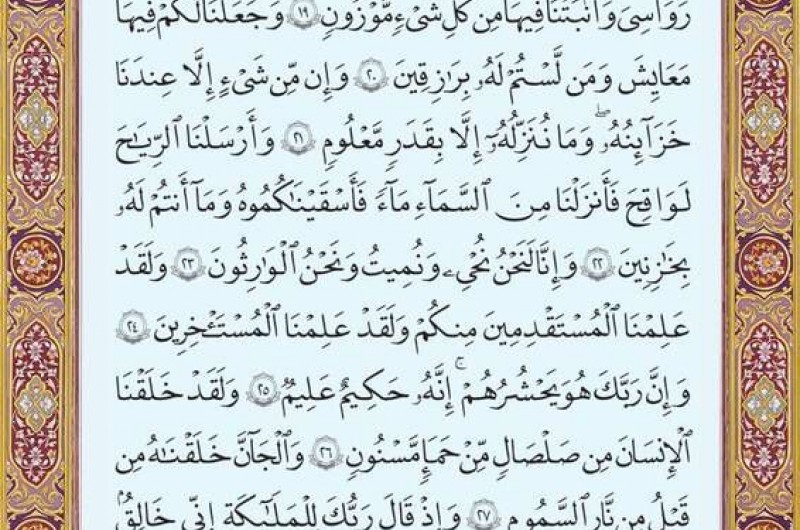 رَوَٰسِىَ وَأَنۢبَتْنَا فِيهَا مِن كُلِّ شَىْءٍ مَّوْزُونٍ ١٩ وَجَعَلْنَا لَكُمْ فِيهَا
مَعَٰيِشَ وَمَن لَّسْتُمْ لَهُۥ بِرَٰزِقِينَ ٢٠ وَإِن مِّن شَىْءٍ إِلَّا عِندَنَا
خَزَآئِنُهُۥ وَمَا نُنَزِّلُهُۥٓ إِلَّا بِقَدَرٍ مَّعْلُومٍ ٢١ وَأَرْسَلْنَا ٱلرِّيَٰحَ
لَوَٰقِحَ فَأَنزَلْنَا مِنَ ٱلسَّمَآءِ مَآءً فَأَسْقَيْنَٰكُمُوهُ وَمَآ أَنتُمْ لَهُۥ
بِخَٰزِنِينَ ٢٢ وَإِنَّا لَنَحْنُ نُحْىِۦ وَنُمِيتُ وَنَحْنُ ٱلْوَٰرِثُونَ ٢٣ وَلَقَدْ
عَلِمْنَا ٱلْمُسْتَقْدِمِينَ مِنكُمْ وَلَقَدْ عَلِمْنَا ٱلْمُسْتَـْٔخِرِينَ ٢٤
وَإِنَّ رَبَّكَ هُوَ يَحْشُرُهُمْ ۚ إِنَّهُۥ حَكِيمٌ عَلِيمٌ ٢٥ وَلَقَدْ خَلَقْنَا
ٱلْإِنسَٰنَ مِن صَلْصَٰلٍ مِّنْ حَمَإٍ مَّسْنُونٍ ٢٦ وَٱلْجَآنَّ خَلَقْنَٰهُ مِن
قَبْلُ مِن نَّارِ ٱلسَّمُومِ ٢٧ وَإِذْ قَالَ رَبُّكَ لِلْمَلَٰٓئِكَةِ إِنِّى خَٰلِقٌۢ